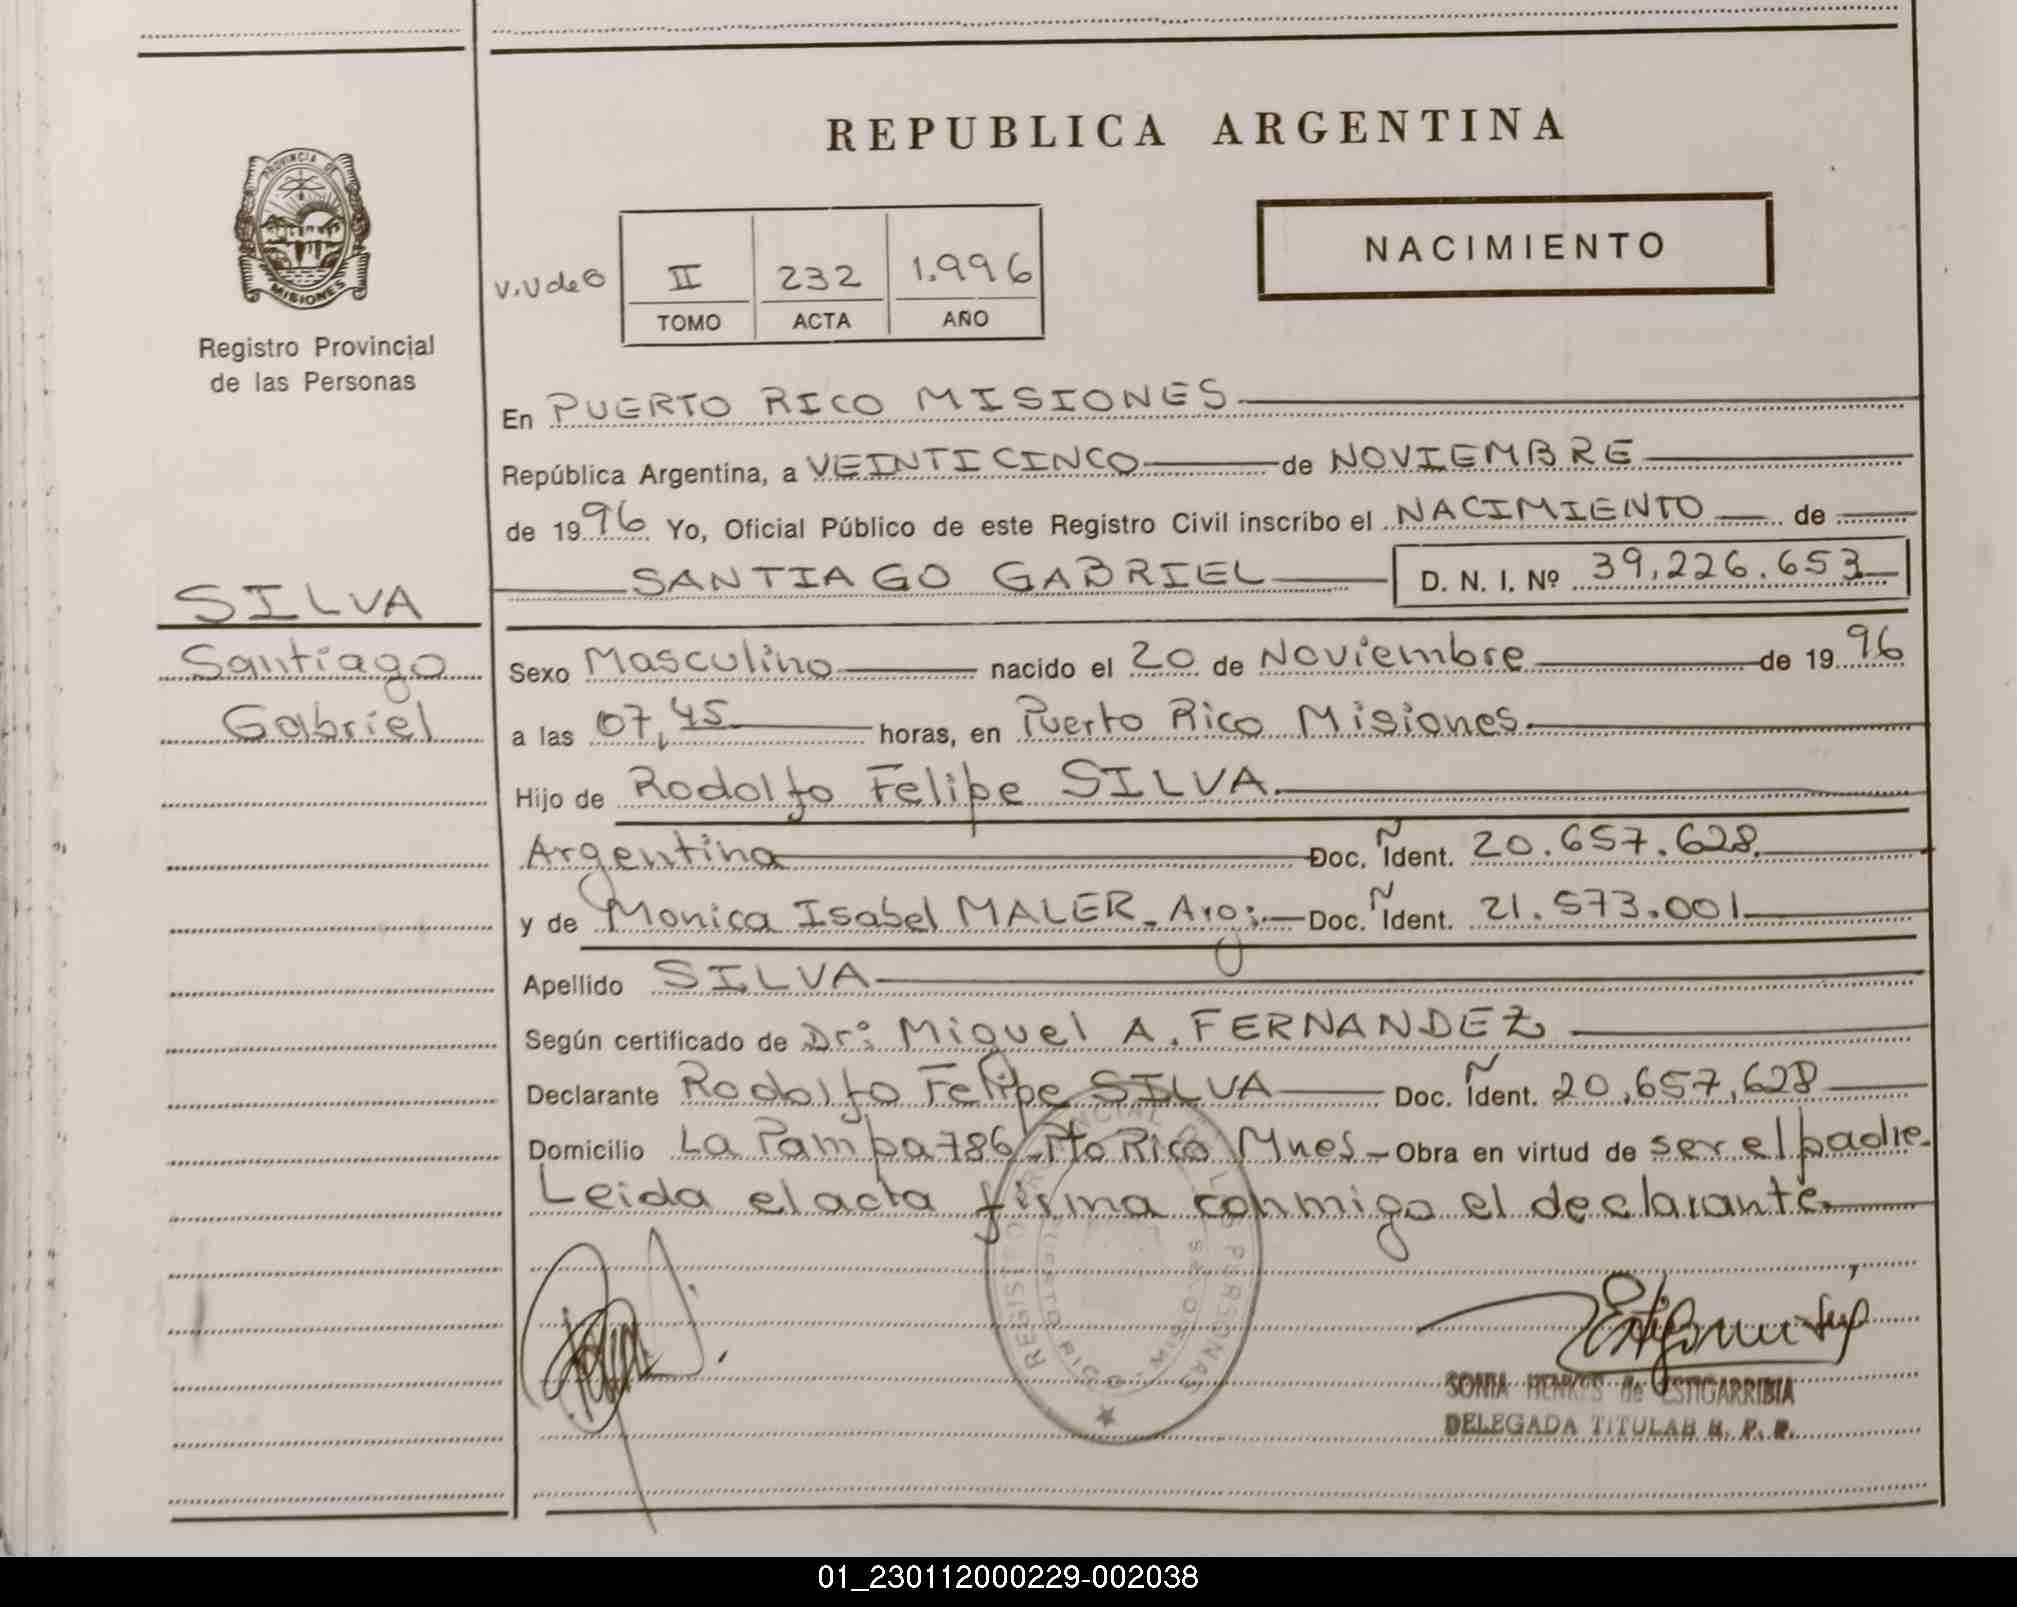 REPUBLICA ARGENTINA
PROVINCIA DE
MISIONES
Registro Provincial
de las Personas
NACIMIENTO
II 232 1.996
TOMO ACTA AÑO
En PUERTO RICO MISIONES
República Argentina, a VEINTICINCO de NOVIEMBRE
de 1996 Yo, Oficial Público de este Registro Civil inscribo el NACIMIENTO de
SANTIAGO GABRIEL D. N. I. Nº 39.226.653
SILVA
Santiago
Gabriel
Sexo Masculino nacido el 20 de Noviembre de 1996
a las 07,45 horas, en Puerto Rico Misiones.
Hijo de Rodolfo Felipe SILVA.
Argentina Doc. Ñ Ident. 20.657.628
y de Monica Isabel MALER - Arg:. Doc. Ñ Ident. 21.573.001
Apellido SILVA
Según certificado de Dr: Miguel A. FERNANDEZ
Declarante Rodolfo Felipe SILVA Doc. Ñ Ident. 20,657,628
Domicilio La Pampa 786 - Pto Rico Mnes - Obra en virtud de ser el padre.
Leida el acta firma conmigo el declarante.
REGISTRO PROVINCIAL DE LAS PERSONAS
PUERTO RICO - MISIONES
SONIA HENKES de ESTIGARRIBIA
DELEGADA TITULAR R. P. P.
01_230112000229-002038